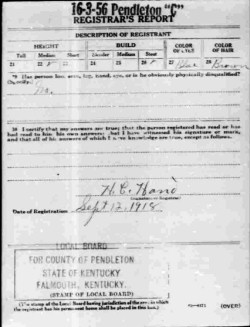 16-3-56 Pendleton "C"
REGISTRAR'S REPORT
DESCRIPTION OF REGISTRANT
HEIGHT BUILD COLOR OF EYES COLOR OF HAIR
Tall Medium Short Slender Medium Stout
21 22 23 24 25 26 27 Blue 28 Brown
29 Has person lost arm, leg, hand, eye, or is he obviously physically disqualified?
(Specify.)
No.
30 I certify that my answers are true; that the person registered has read or has
had read to him his own answers; that I have witnessed his signature or mark,
and that all of his answers of which I have knowledge are true, except as follows:
H. C.
Date of Registration Sept 12, 1918
LOCAL BOARD
FOR COUNTY OF PENDLETON
STATE OF KENTUCKY
FALMOUTH, KENTUCKY.
(STAMP OF LOCAL BOARD)
(The stamp of the Local Board having jurisdiction of the area in which
the registrant has his permanent home shall be placed in this box.)
(OVER)